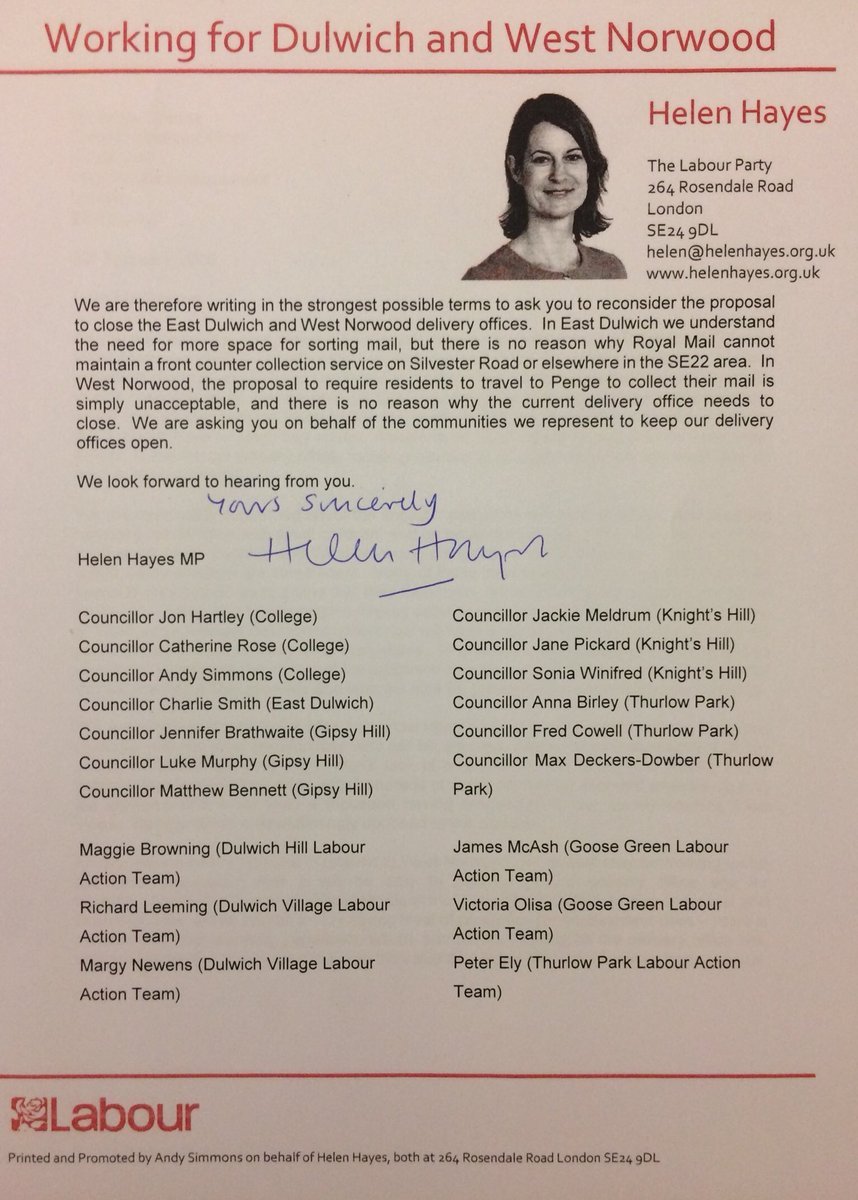 Working for Dulwich and West Norwood
Helen Hayes
The Labour Party
264 Rosendale Road
London
SE24 9DL
helen@helenhayes.org.uk
www.helenhayes.org.uk
We are therefore writing in the strongest possible terms to ask you to reconsider the proposal
to close the East Dulwich and West Norwood delivery offices. In East Dulwich we understand
the need for more space for sorting mail, but there is no reason why Royal Mail cannot
maintain a front counter collection service on Silvester Road or elsewhere in the SE22 area. In
West Norwood, the proposal to require residents to travel to Penge to collect their mail is
simply unacceptable, and there is no reason why the current delivery office needs to
close. We are asking you on behalf of the communities we represent to keep our delivery
offices open.
We look forward to hearing from you.
Yours sincerely
Helen Hayes MP
Helen Hayes
Councillor Jon Hartley (College)
Councillor Catherine Rose (College)
Councillor Andy Simmons (College)
Councillor Charlie Smith (East Dulwich)
Councillor Jennifer Brathwaite (Gipsy Hill)
Councillor Luke Murphy (Gipsy Hill)
Councillor Matthew Bennett (Gipsy Hill)
Councillor Jackie Meldrum (Knight's Hill)
Councillor Jane Pickard (Knight's Hill)
Councillor Sonia Winifred (Knight's Hill)
Councillor Anna Birley (Thurlow Park)
Councillor Fred Cowell (Thurlow Park)
Councillor Max Deckers-Dowber (Thurlow
Park)
Maggie Browning (Dulwich Hill Labour
Action Team)
Richard Leeming (Dulwich Village Labour
Action Team)
Margy Newens (Dulwich Village Labour
Action Team)
James McAsh (Goose Green Labour
Action Team)
Victoria Olisa (Goose Green Labour
Action Team)
Peter Ely (Thurlow Park Labour Action
Team)
Labour
Printed and Promoted by Andy Simmons on behalf of Helen Hayes, both at 264 Rosendale Road London SE24 9DL